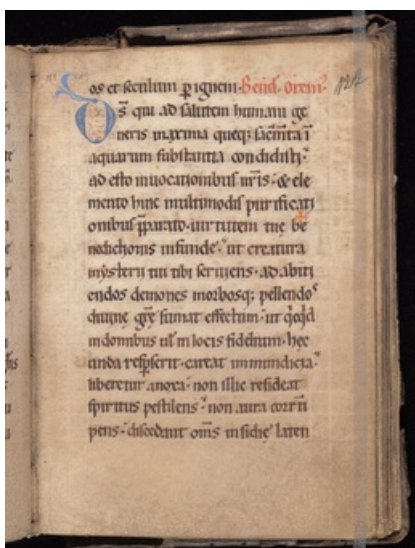 os et seculum p ignem. Bend. orem.
Ds qui ad salutem humani ge
neris maxima queq; sacmta i
aquarum substantia condidisti.
ad esto inuocationibus nris. & ele
mento huic multimodis purificati
onibus pparato. uirtutem tue be
nedictionis infunde. ut creatura
mysterii tui tibi seruiens. ad abiti
endos demones morbosq; pellendos
diuine gre sumat effectum. ut qcqd
in domibus ul in locis fidelium. hec
unda resperserit. careat inmundicia.
liberetur a noxa. non illic resideat
spiritus pestilens. non aura corrū
pens. discedant oms insidie laten